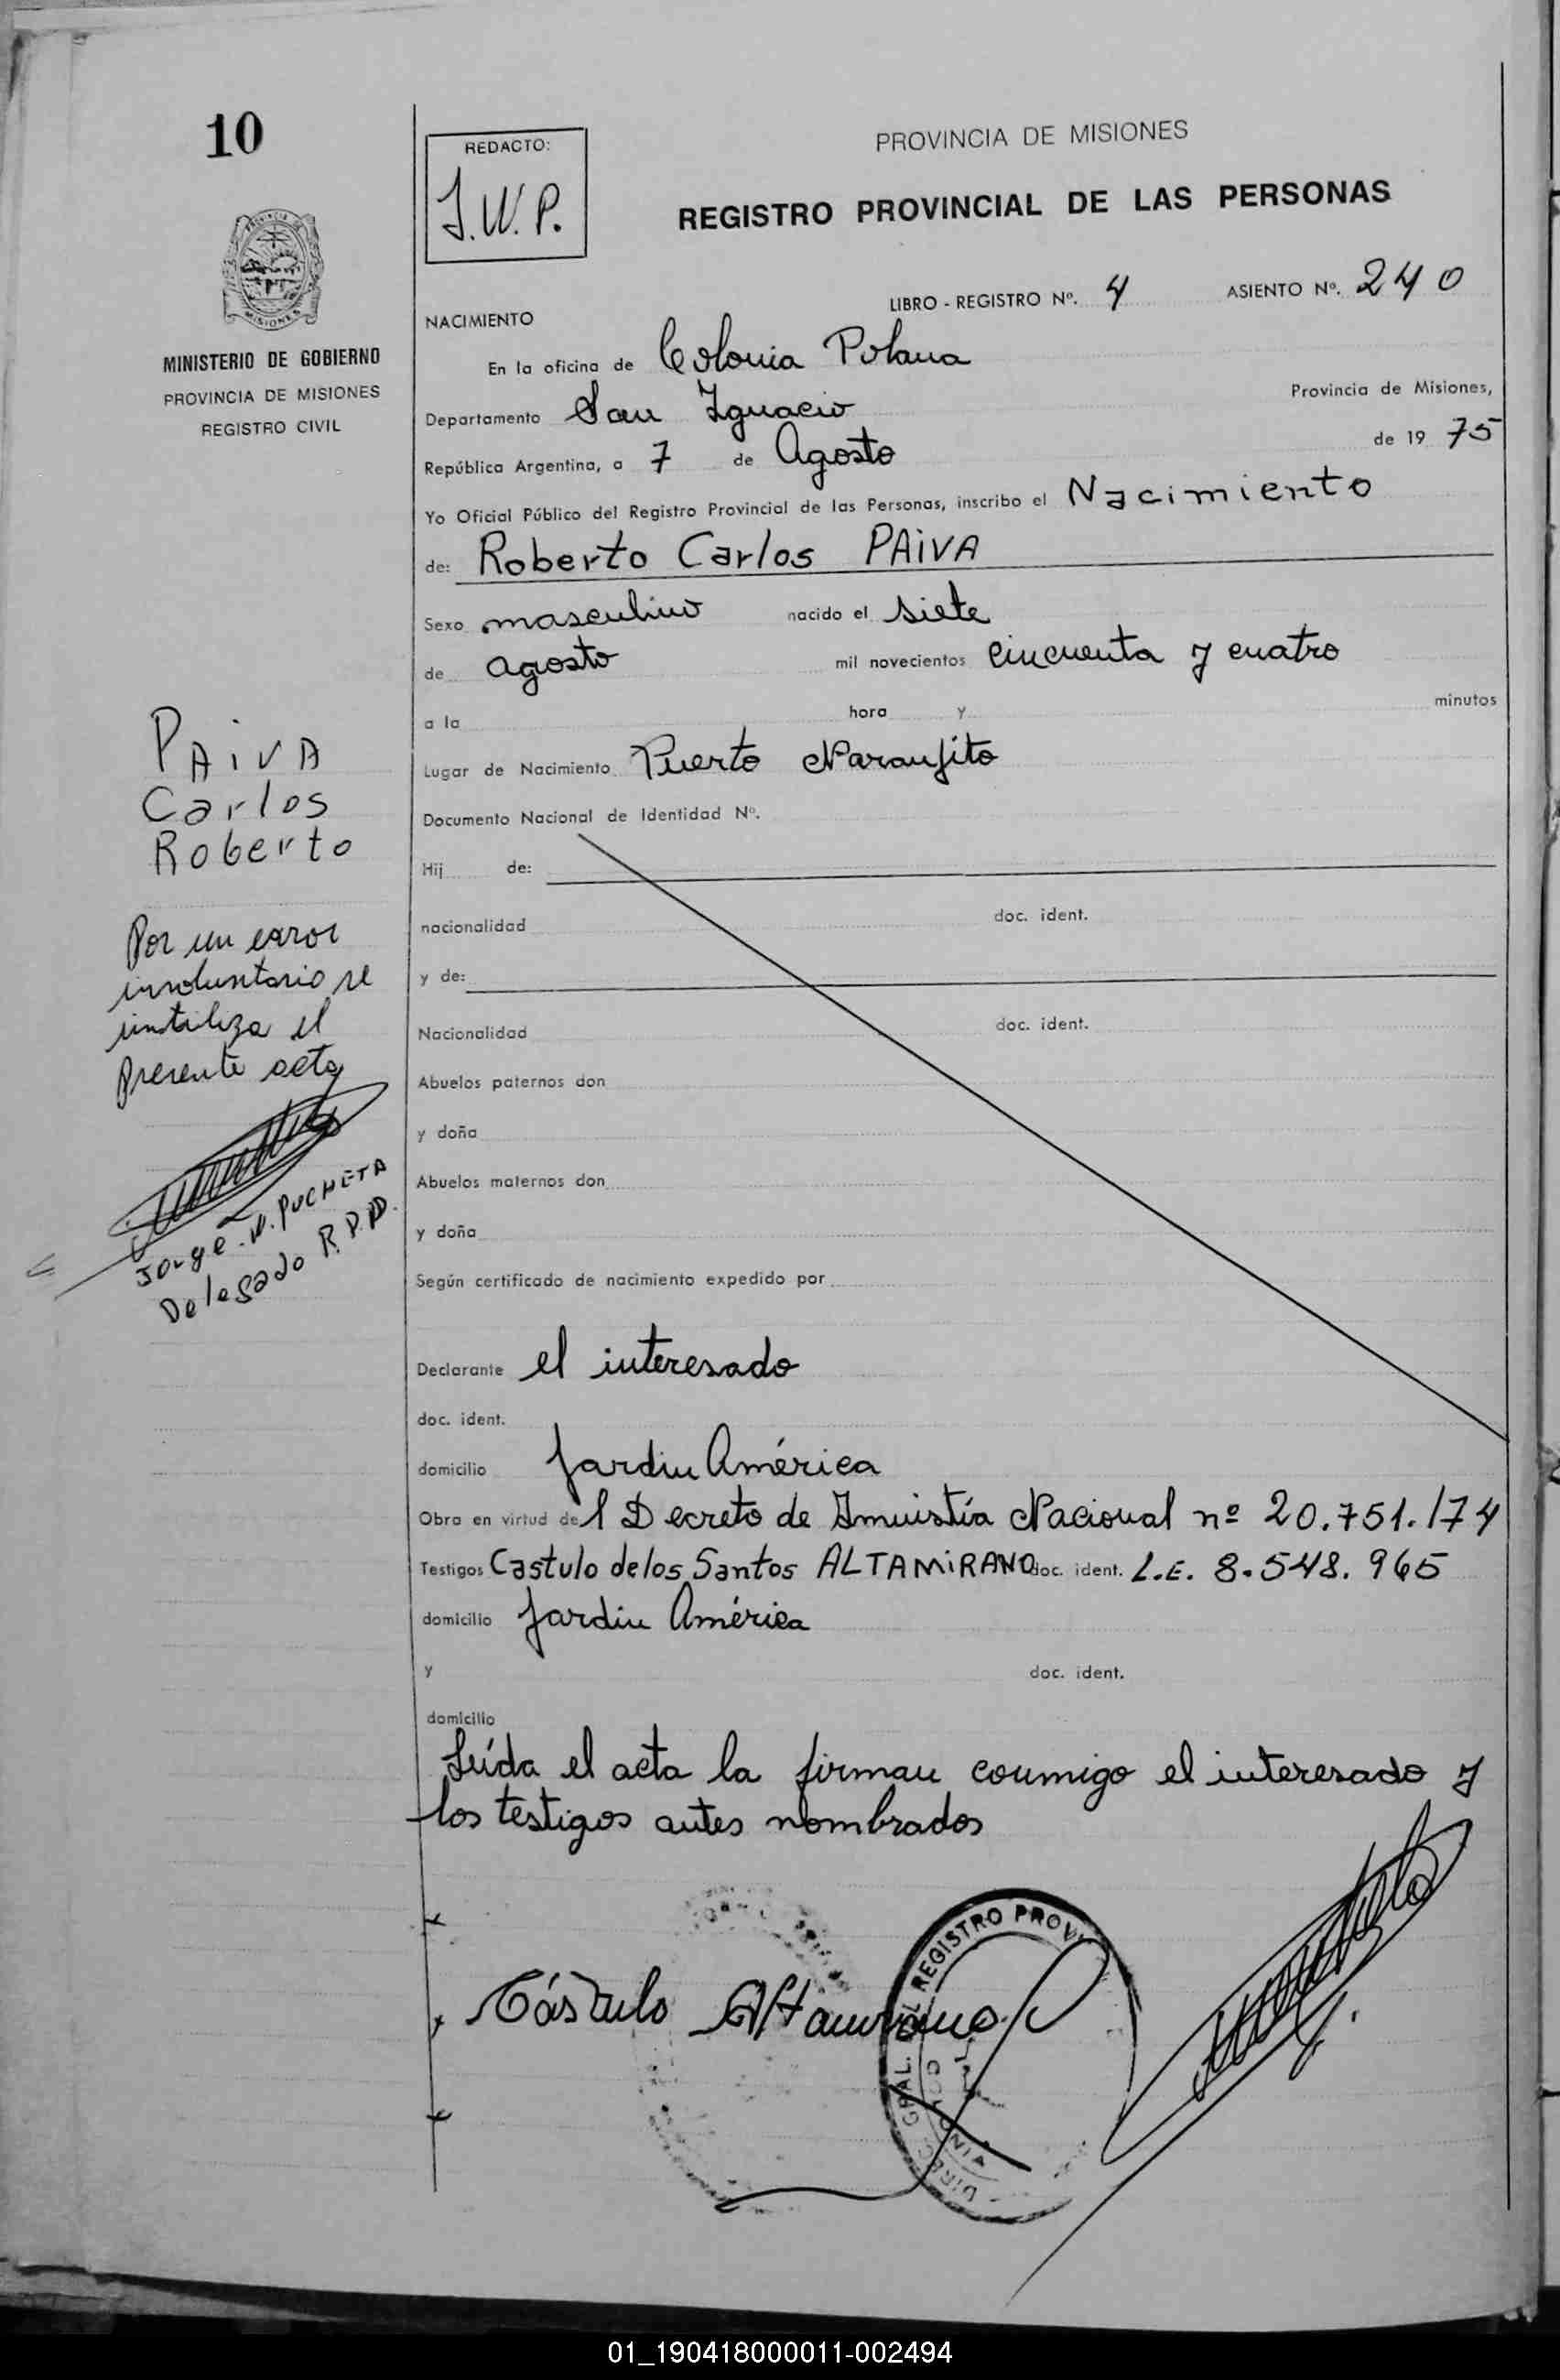 10
MINISTERIO DE GOBIERNO
PROVINCIA DE MISIONES
REGISTRO CIVIL
REDACTO:
J.W.P.
PROVINCIA DE MISIONES
REGISTRO PROVINCIAL DE LAS PERSONAS
LIBRO - REGISTRO Nº. 4 ASIENTO Nº. 240
NACIMIENTO
En la oficina de Colonia Polana
Departamento San Ignacio Provincia de Misiones,
República Argentina, a 7 de Agosto de 19 75
Yo Oficial Público del Registro Provincial de las Personas, inscribo el Nacimiento
de: Roberto Carlos PAiVA
Sexo masculino nacido el siete
de agosto mil novecientos cincuenta y cuatro
a la hora y minutos
Lugar de Nacimiento Puerto Naranjito
Documento Nacional de Identidad Nº.
Hij de:
nacionalidad doc. ident.
y de:
Nacionalidad doc. ident.
Abuelos paternos don
y doña
Abuelos maternos don
y doña
Según certificado de nacimiento expedido por
Declarante el interesado
doc. ident.
domicilio Jardin América
Obra en virtud del Decreto de Amnistía Nacional nº 20.751./74
Testigos Castulo delos Santos ALTAMiRANO doc. ident. L.E. 8.548.965
domicilio Jardin América
y doc. ident.
domicilio
Leída el acta la firman conmigo el interesado y
los testigos antes nombrados
Cástulo Altamirano
GRAL. DEL REGISTRO PROVI
PAiVA
Carlos
Roberto
Por un error
involuntario se
inutiliza el
presente acta
Jorge W. PUCHETA
Delegado R.P.P.
MISIONES
01_190418000011-002494